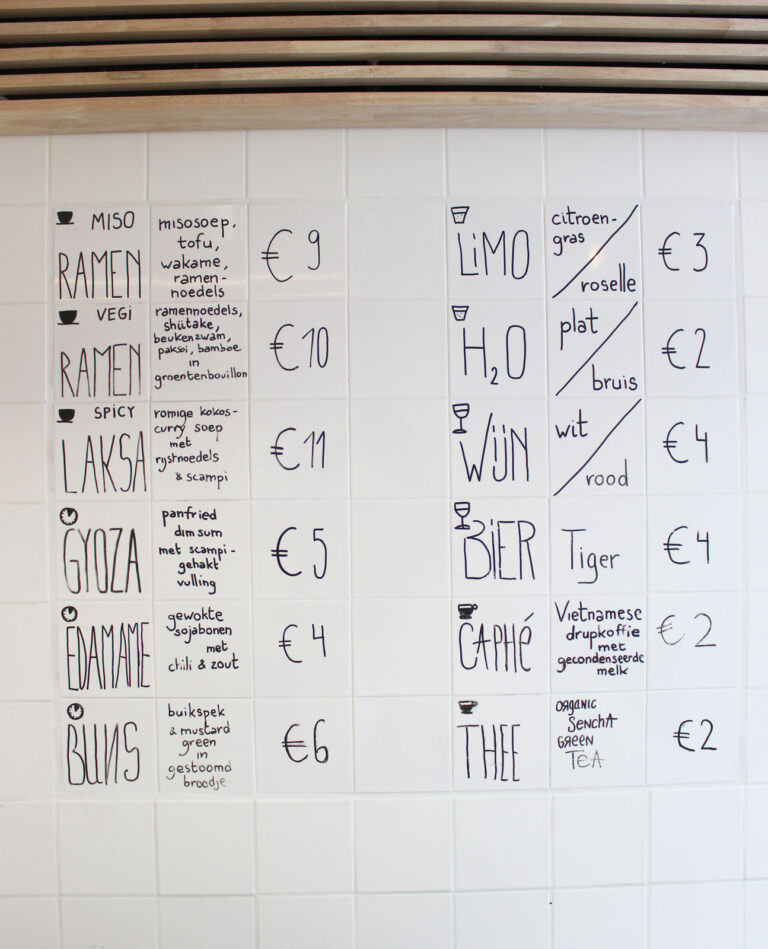 MISO
RAMEN
misosoep,
tofu,
wakame,
ramen-
noedels
€9
VEGI
RAMEN
ramennoedels,
shiitake,
beukenzwam,
paksoi, bamboe
in
groentenbouillon
€10
SPICY
LAKSA
romige kokos-
curry soep
met
rijstnoedels
& scampi
€11
GYOZA
panfried
dim sum
met scampi-
gehakt
vulling
€5
EDAMAME
gewokte
sojabonen
met
chili & zout
€4
BUNS
buikspek
& mustard
green
in
gestoomd
broodje
€6
LiMO
citroen-
gras
roselle
€3
H₂O
plat
bruis
€2
WIJN
wit
rood
€4
BiER
Tiger
€4
CAPHÉ
Vietnamese
drupkoffie
met
gecondenseerde
melk
€2
THEE
ORGANIC
SENCHA
GREEN
TEA
€2